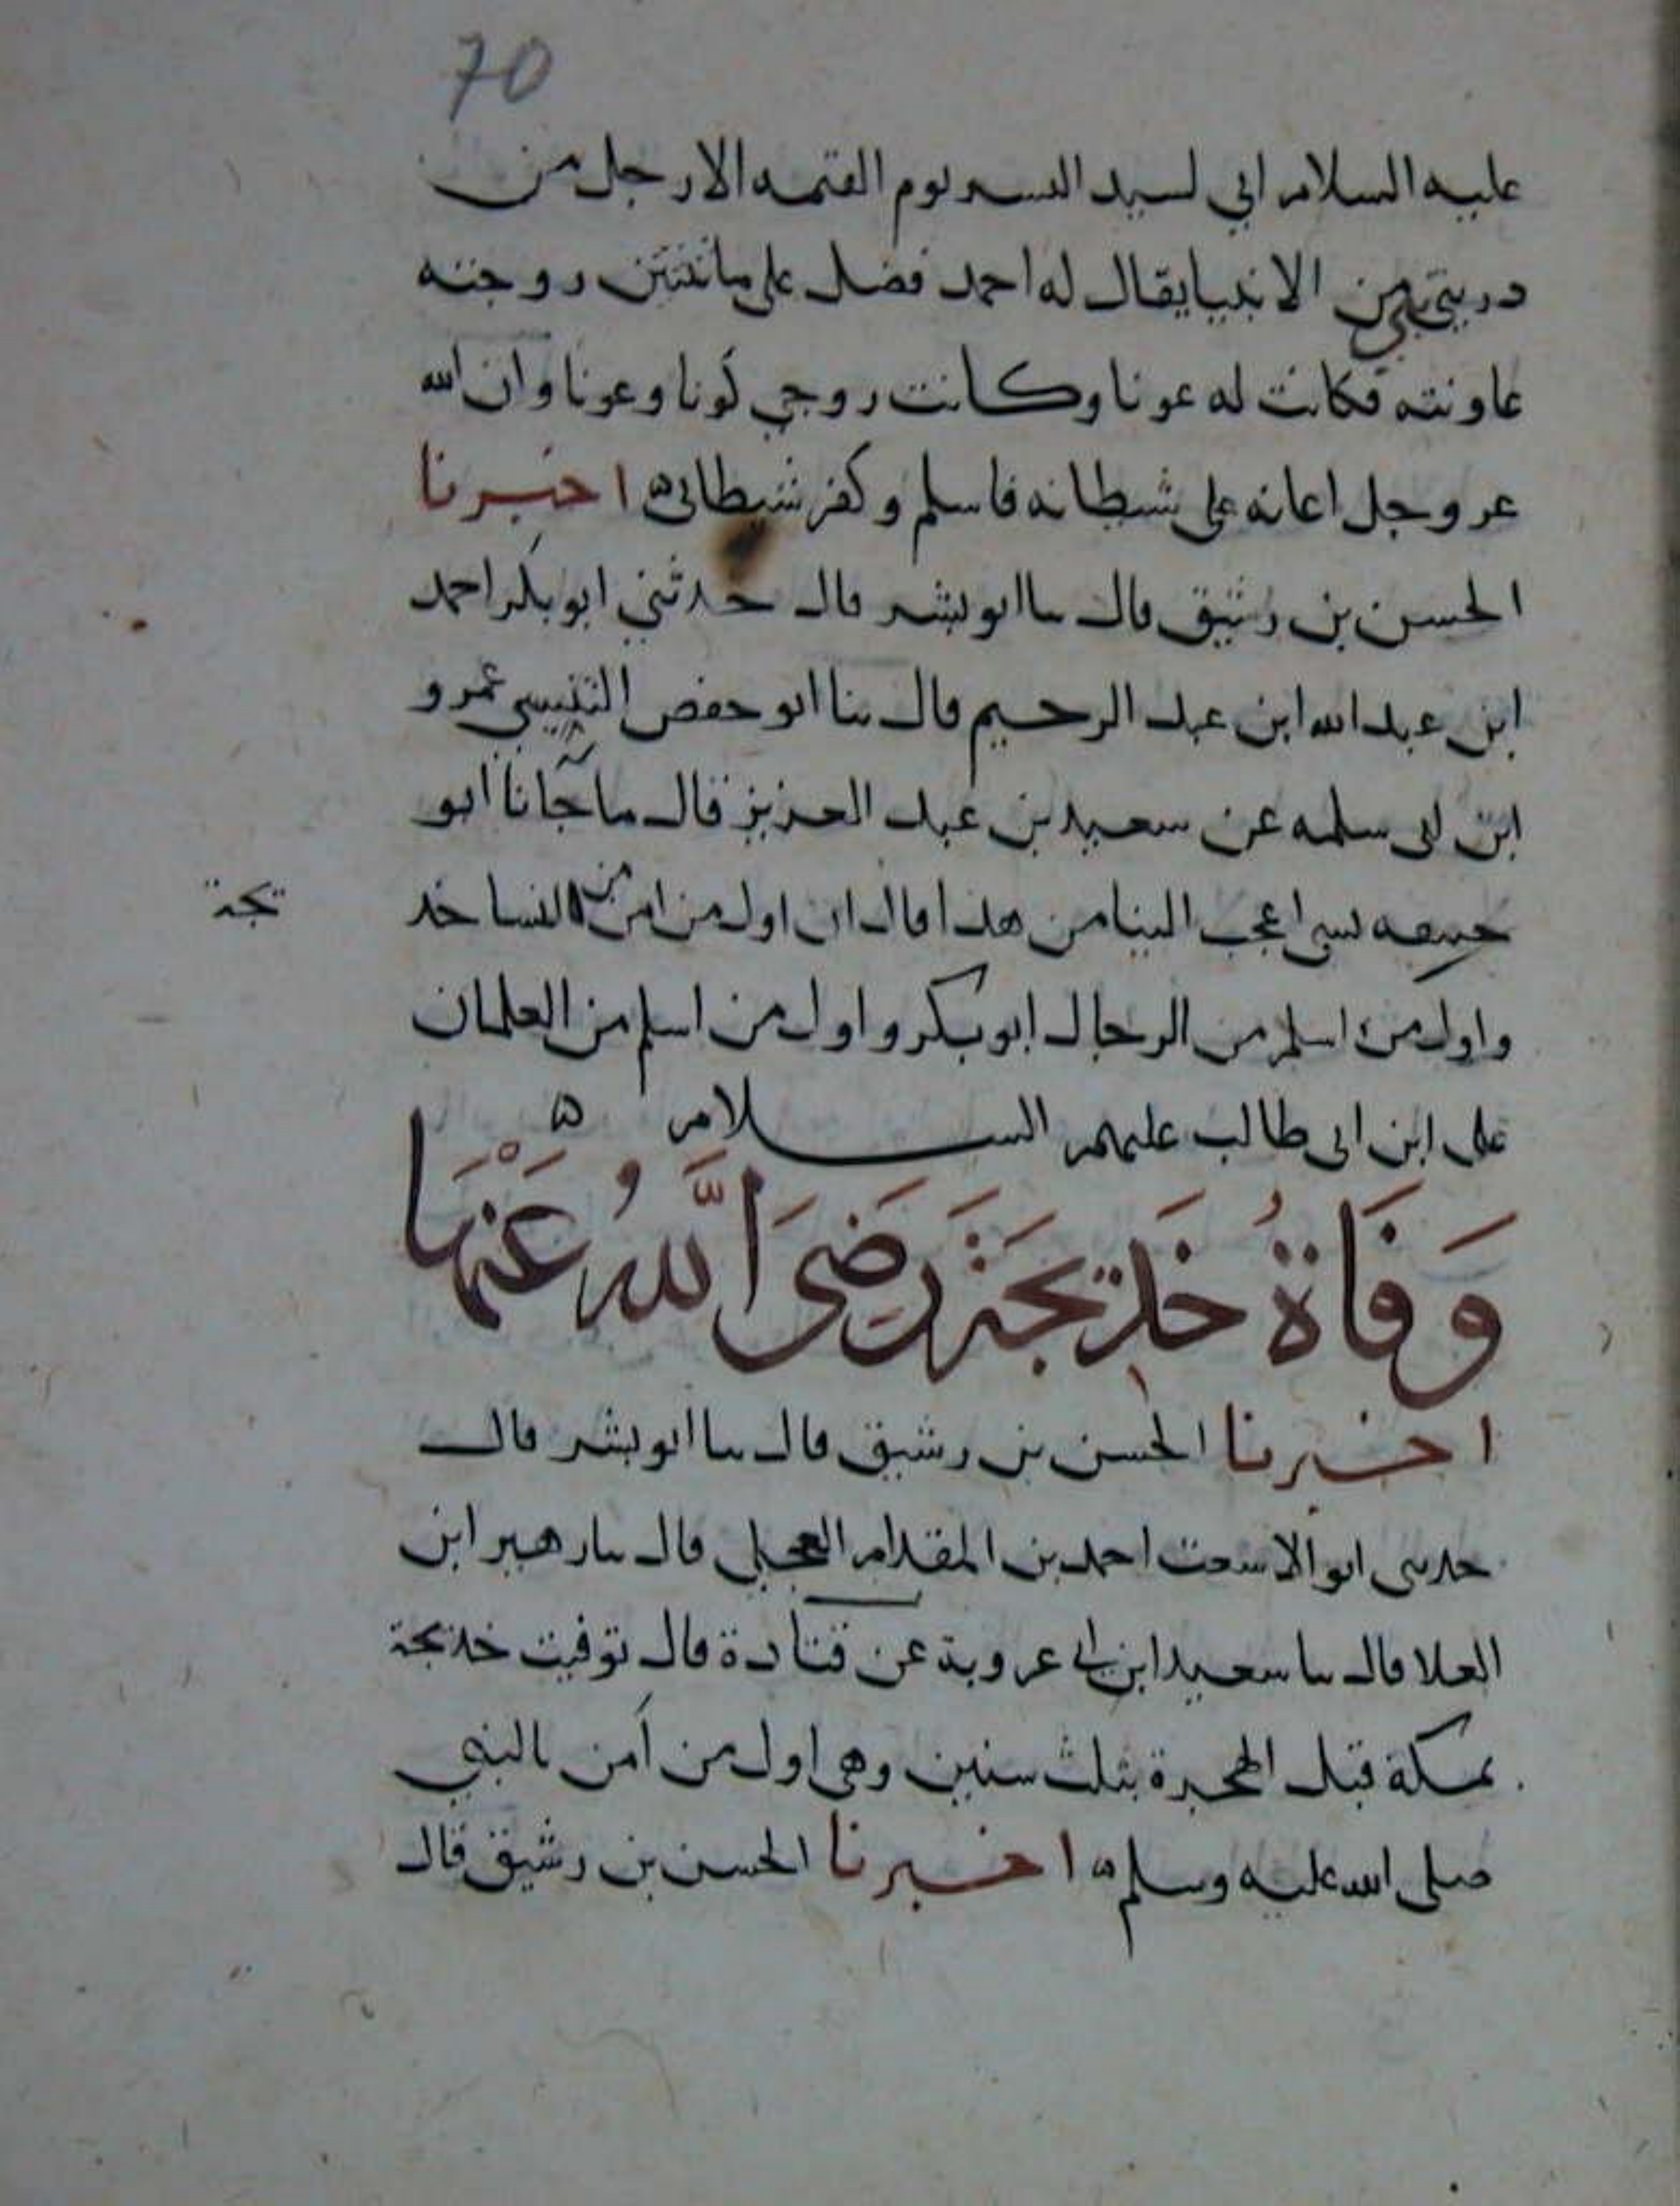 70
عليه السلام اني لسيد البشر يوم القيمه الا رجل من
ذريتي نبي من الانبيا يقال له احمد فضل علي باثنتين زوجته
عاونته فكانت له عونا وكانت زوجي كونا وعونا وان الله
عز وجل اعانه على شيطانه فاسلم وكفر شيطاني ه اخبرنا
الحسن بن رشيق قال نا ابو بشر قال حدثني ابو بكر احمد
ابن عبد الله ابن عبد الرحيم قال نا ابو حفص التنيسي عمرو
ابن ابي سلمه عن سعيد بن عبد العزيز قال ما جآنا ابو
حنيفه بشي اعجب الينا من هذا قال ان اول من امن من النسا خد
يجة
واول من اسلم من الرجال ابو بكر واول من اسلم من الغلمان
على ابن ابي طالب عليهم السلام ه
وَفَاةُ خَديجَةَ رَضِيَ اللَّهُ عَنْهَا
اخبرنا الحسن بن رشيق قال نا ابو بشر قال
حدثني ابو الاشعث احمد بن المقدام العجلي قال نا زهير ابن
العلا قال نا سعيد ابن ابي عروبة عن قتادة قال توفيت خديجة
بمكة قبل الهجرة بثلث سنين وهي اول من آمن بالنبي
صلى الله عليه وسلم ه اخبرنا الحسن بن رشيق قال